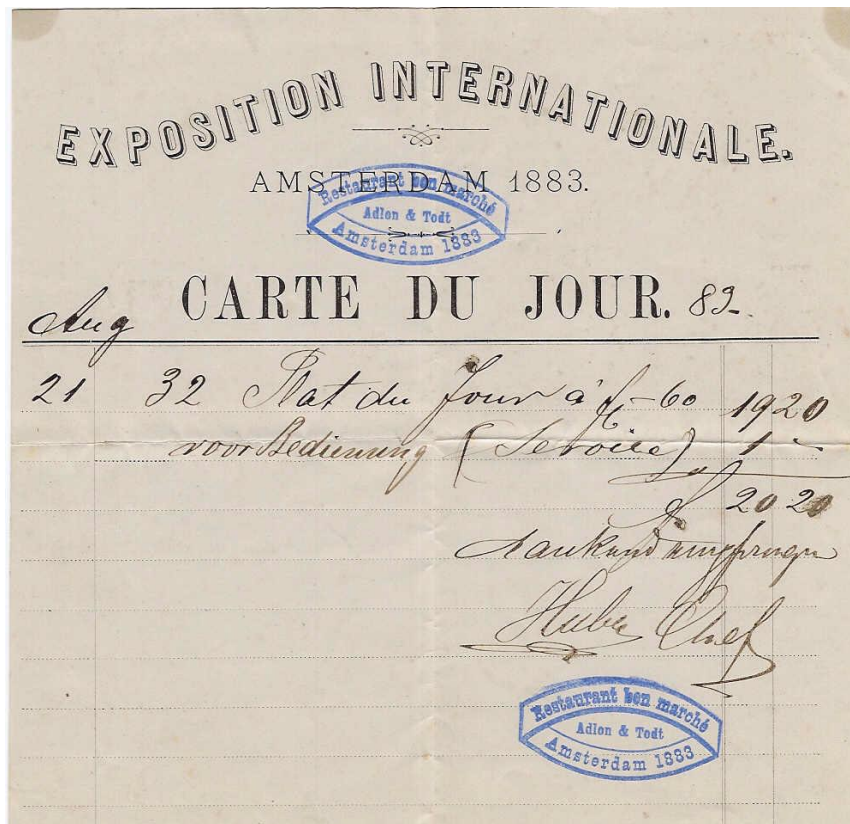 EXPOSITION INTERNATIONALE.
AMSTERDAM 1883.
Restaurant bon marché
Adlon & Todt
Amsterdam 1883
CARTE DU JOUR. 83.
Aug
21 32 Plat du Jour à f -60 1920
voor Bedienung (Service) 1 -
f 2020
dankend empfangen
Huber Chef
Restaurant bon marché
Adlon & Todt
Amsterdam 1883